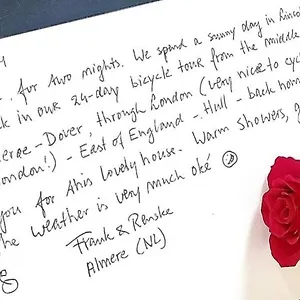 for two nights. We spend a sunny day in Linco
k in our 24-day bicycle tour from the middle
erge - Dover, through London (very nice to cyc
ondon!) - East of England - Hull - back hom
you for this lovely house. Warm Showers, g
he weather is very much oké ☺
Frank & Renske
Almere (NL)